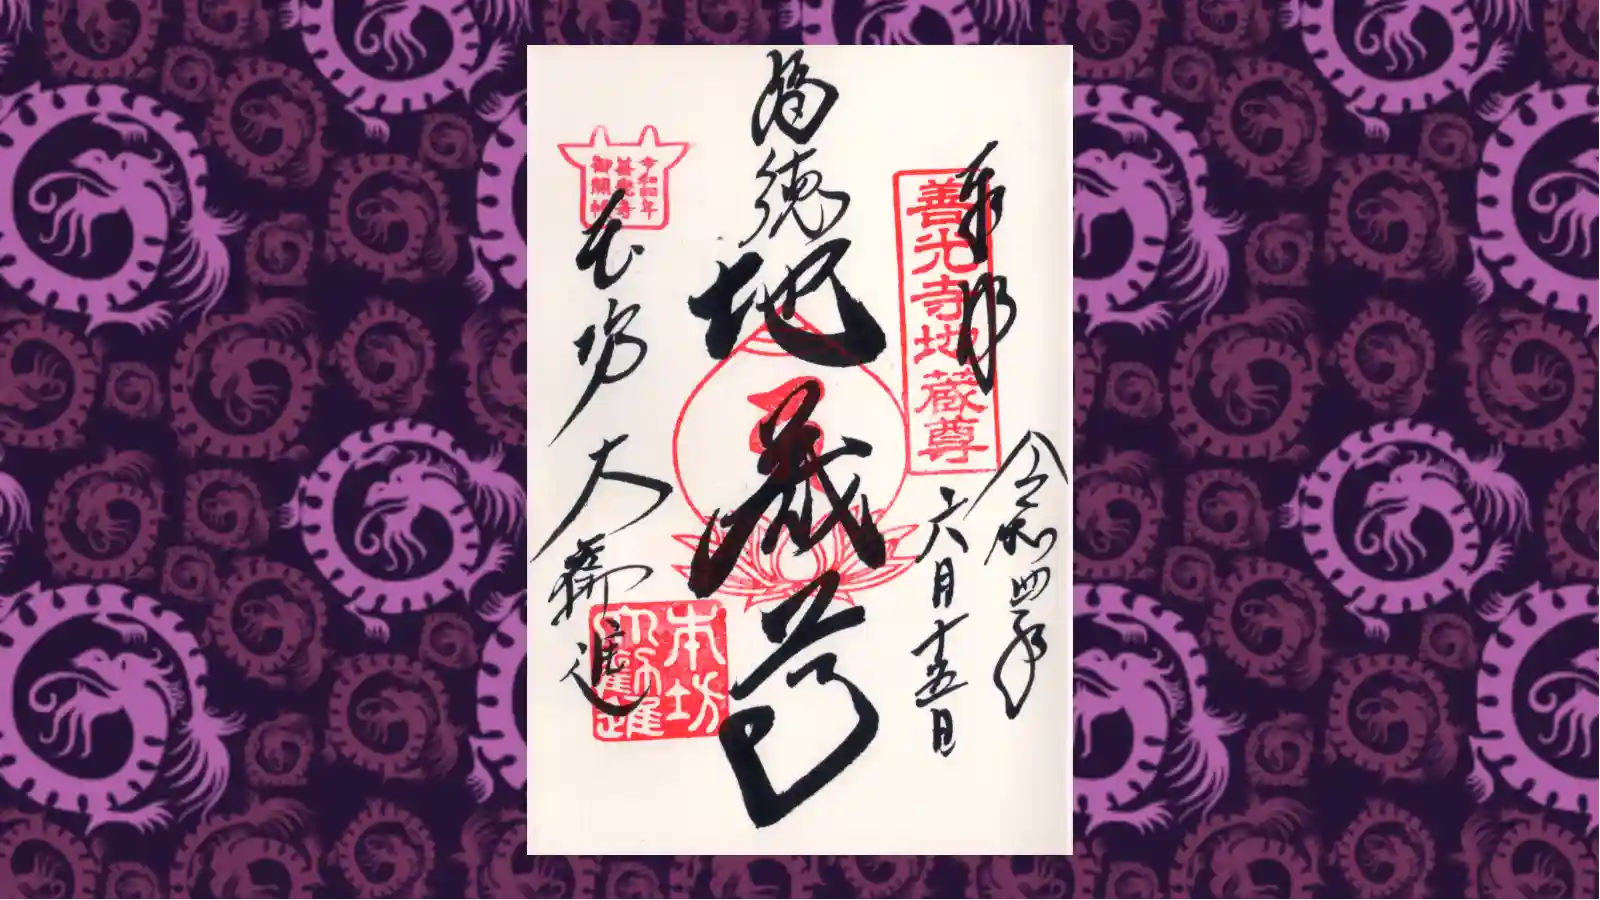 奉拝
善光寺地蔵尊
令和四年
六月十五日
福徳
地蔵尊
令和四年
善光寺
御開帳
本坊
大勧進
本坊
大勧進